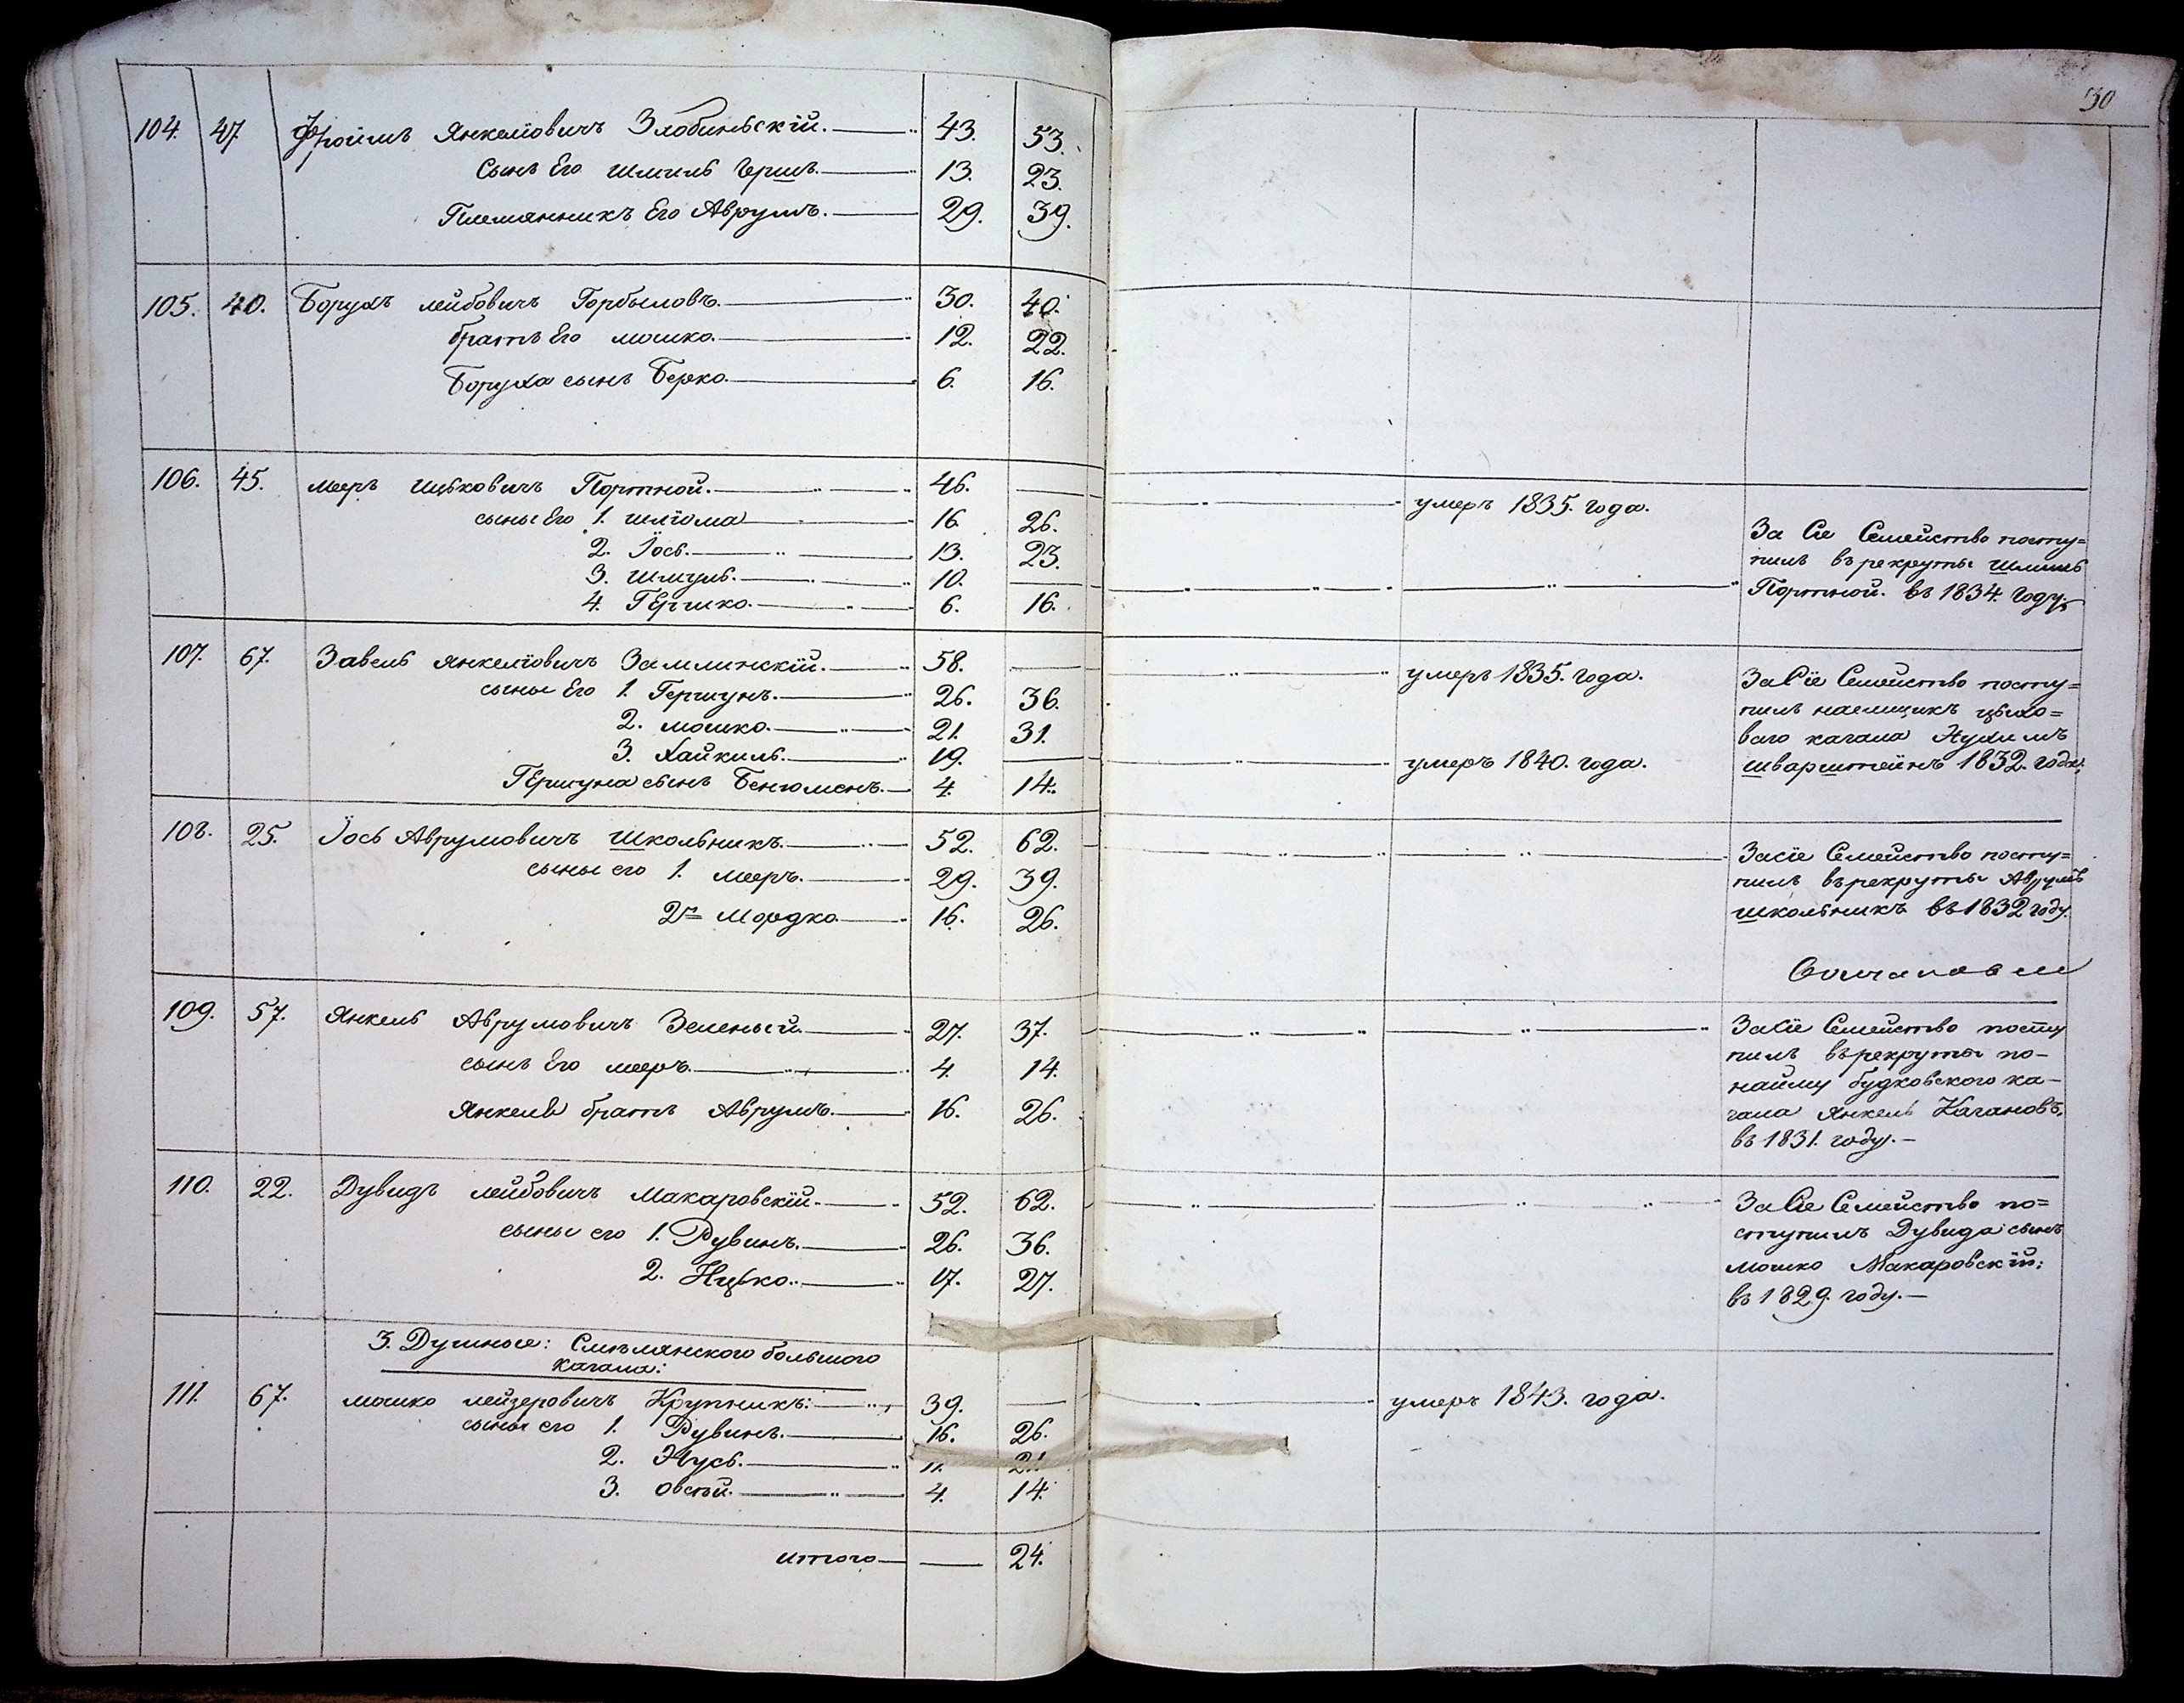 30
104. 47. Фроимъ Янкеліовичъ Злобинскій. 43. 53.
Сынъ Его Шмиль Герш. 13. 23.
Племянникъ Его Аврумъ. 29. 39.
105. 40. Борухъ Лейбовичъ Горбыловъ. 30. 40.
братъ Его Мошко. 12. 22.
Боруха сынъ Берко. 6. 16.
106. 45. Мееръ Ицьковичъ Портной. 46. — умеръ 1835. года.
сыны Его 1. Шліома 16. 26. За Сіе Семейство посту=
2. Іось. 13. 23. пилъ въ рекруты
3. Шмуль. 10. — Портной. въ 1834. году.
4. Гершко. 6. 16.
107. 67. Завель Янкеліовичъ Замлинскій. 58. — умеръ 1835. года. За Сіе Семейство посту=
сыны Его 1. Гершунъ. 26. 36. пилъ наемщикъ
2. Мошко. 21. 31. кагала Нухимъ
3. Хайкиль. 19. — умеръ 1840. года. Шварштейнъ 1832. года.
Гершуна сынъ Бенюменъ. 4. 14.
108. 25. Іось Аврумовичъ Школьникъ. 52. 62. За сіе Семейство посту=
сыны его 1. Мееръ. 29. 39. пилъ въ рекруты Аврумъ
2й Мордко 16. 26. Школьникъ въ 1832 году.
109. 57. Янкель Аврумовичъ Зеленый. 27. 37. За Сіе Семейство посту
сынъ Его Мееръ. 4. 14. пилъ въ рекруты по-
найму будковского ка-
Янкеля братъ Аврумъ. 16. 26. гала Янкель Кагановъ,
въ 1831. году.—
110. 22. Дувидъ Лейбовичъ Макаровскій. 52. 62. За Сіе Семейство по=
сыны его 1. Рувинъ. 26. 36. ступилъ Дувида сынъ
2. Ицько. 17. 27. Мошко Макаровскій;
въ 1829. году.—
3. Душные: Смѣлянского большого
кагала:
111. 67. Мошко Лейзеровичъ Крупникъ: 39. — умеръ 1843. года.
сыны его 1. Рувинъ. 16. 26.
2. Нусь. 11. 21.
3. Овсѣй. 4. 14.
итого — 24.